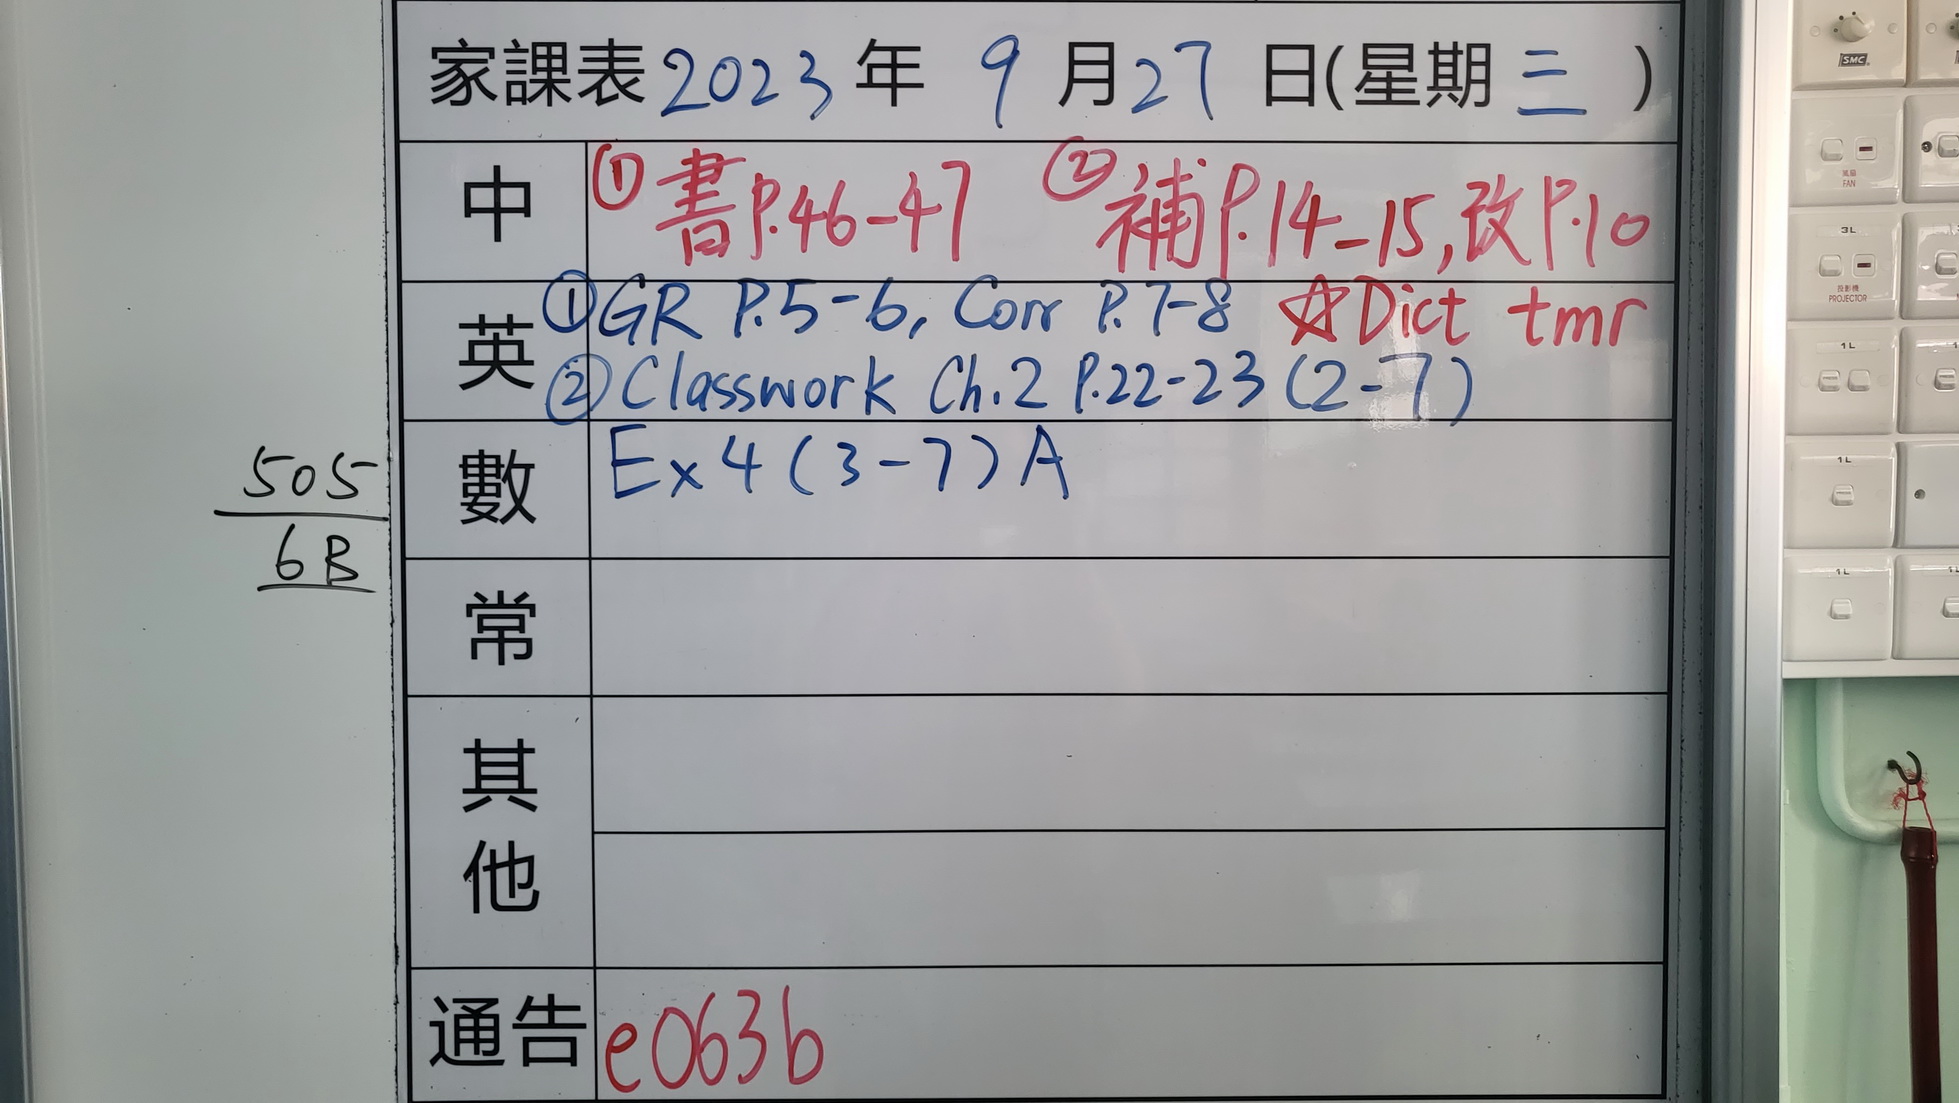 家課表 2023 年 9 月 27 日(星期 三 )
中 ① 書P.46-47 ② 補P.14-15, 改P.10
英 ① GR P.5-6, Corr P.7-8 ☆Dict tmr
② Classwork Ch.2 P.22-23 (2-7)
數 Ex 4 (3-7) A
505
6B
常
其他
通告 e063b
SMC
風扇
FAN
3L
投影機
PROJECTOR
1L
1L
1L